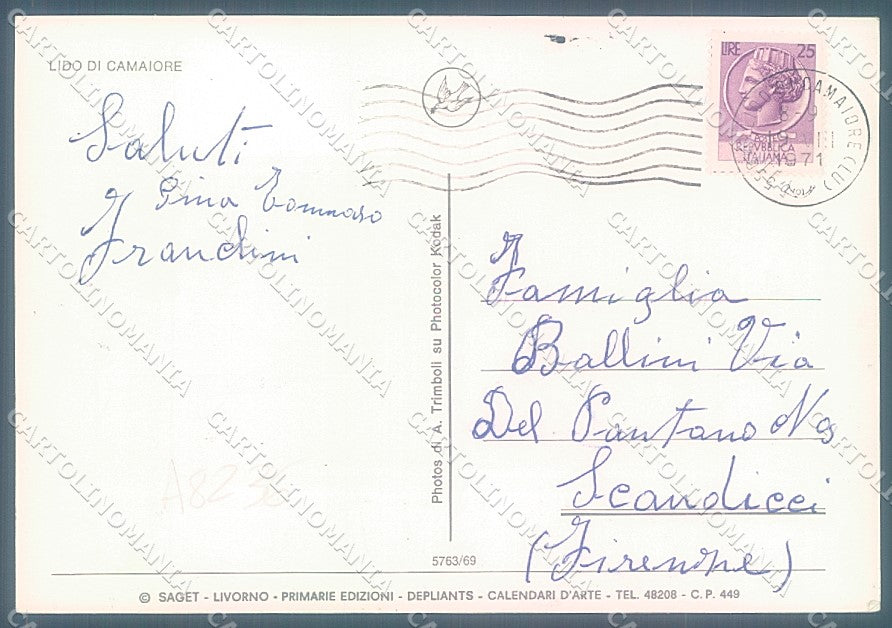 LIDO DI CAMAIORE
Saluti
Gina Tommaso
Frandini
LIRE 25
REPVBBLICA
ITALIANA
CAMAIORE (LU)
1971
Photos di A. Trimboli su Photocolor Kodak
Famiglia
Ballini Via
Del Pantano No
Scandicci
(Firenze)
A8236
5763/69
© SAGET - LIVORNO - PRIMARIE EDIZIONI - DEPLIANTS - CALENDARI D'ARTE - TEL. 48208 - C.P. 449
CARTOLINOMANIA